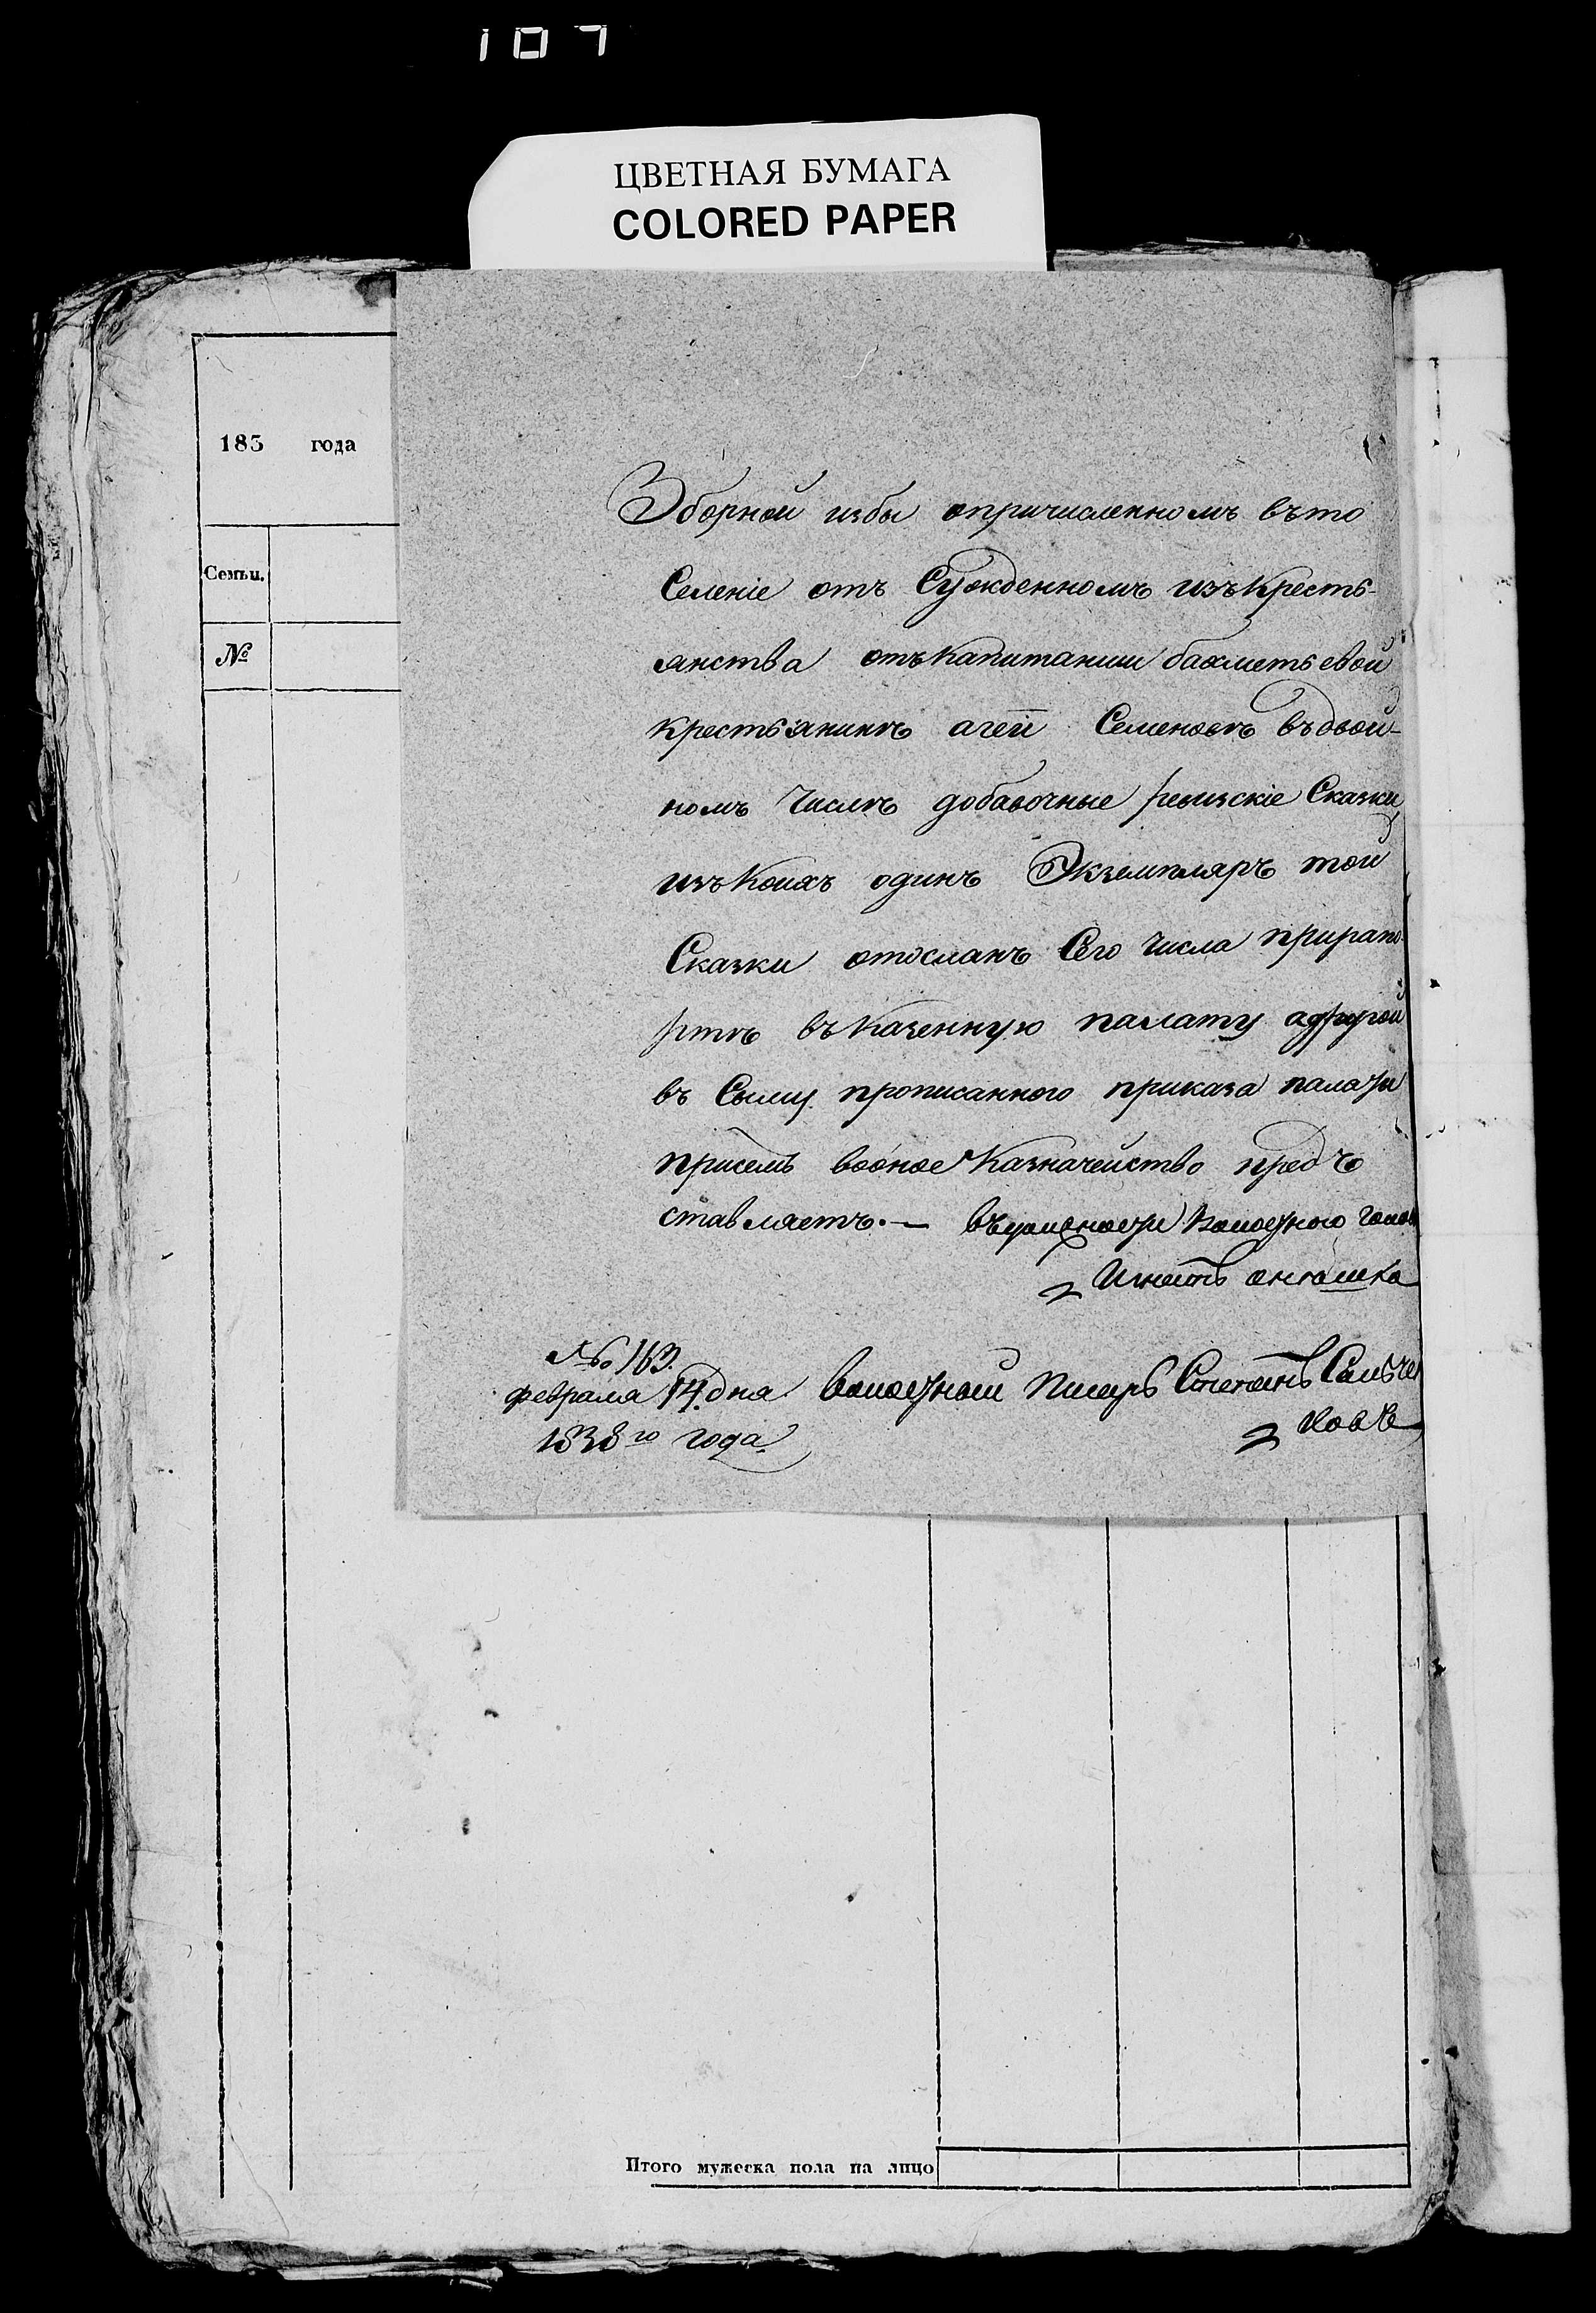 107
ЦВЕТНАЯ БУМАГА
COLORED PAPER
183 года
Семьи.
№
Зборной избы опричисленномъ въто
Селеніе отъ Сужденномъ изъ кресть-
янства отъ капитанши бахметьевой
крестьянинѣ агеѣ Семеновѣ въ двой-
номъ числѣ добавочные ревизскіе Сказки
изъ коихъ одинъ Экземпляръ той
Сказки отосланъ Сего числа прирапо-
ртѣ въ казенную палату адругой
въ Силу прописанного приказа палаты
присемъ вооное Казначейство предъ
ставляетъ. — въ должности волостного головы
Игнатъ
№ 163.
февраля 14. дня волостной Писарь Степанъ
1838го года
Итого мужеска пола на лицо